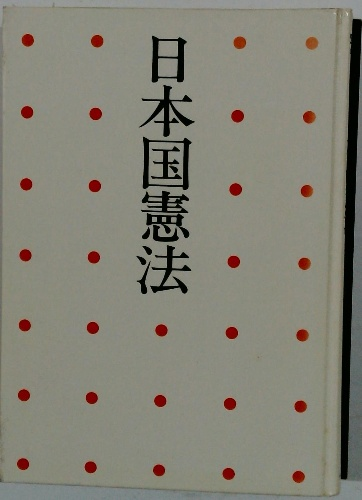 日本国憲法